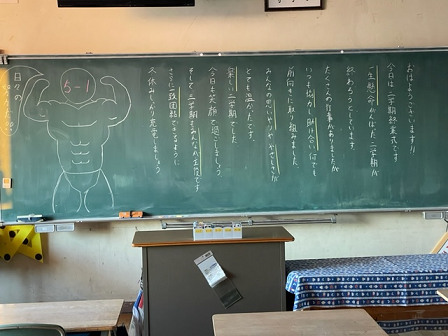 おはようございます!!
今日は二学期終業式です
一生懸命がんばった二学期が
終わろうとしています。
たくさんの行事がありましたが
いつも協力し、助け合い、何でも
前向きに取り組めました。
みんなの思いやりや、やさしさが
とても温かったです。
楽しい二学期でした
今日も笑顔で過ごしましょう
そして、三学期もみんなが主役です
さらに致団結できるように
冬休みしっかり充電しましょう
5-1
日々の